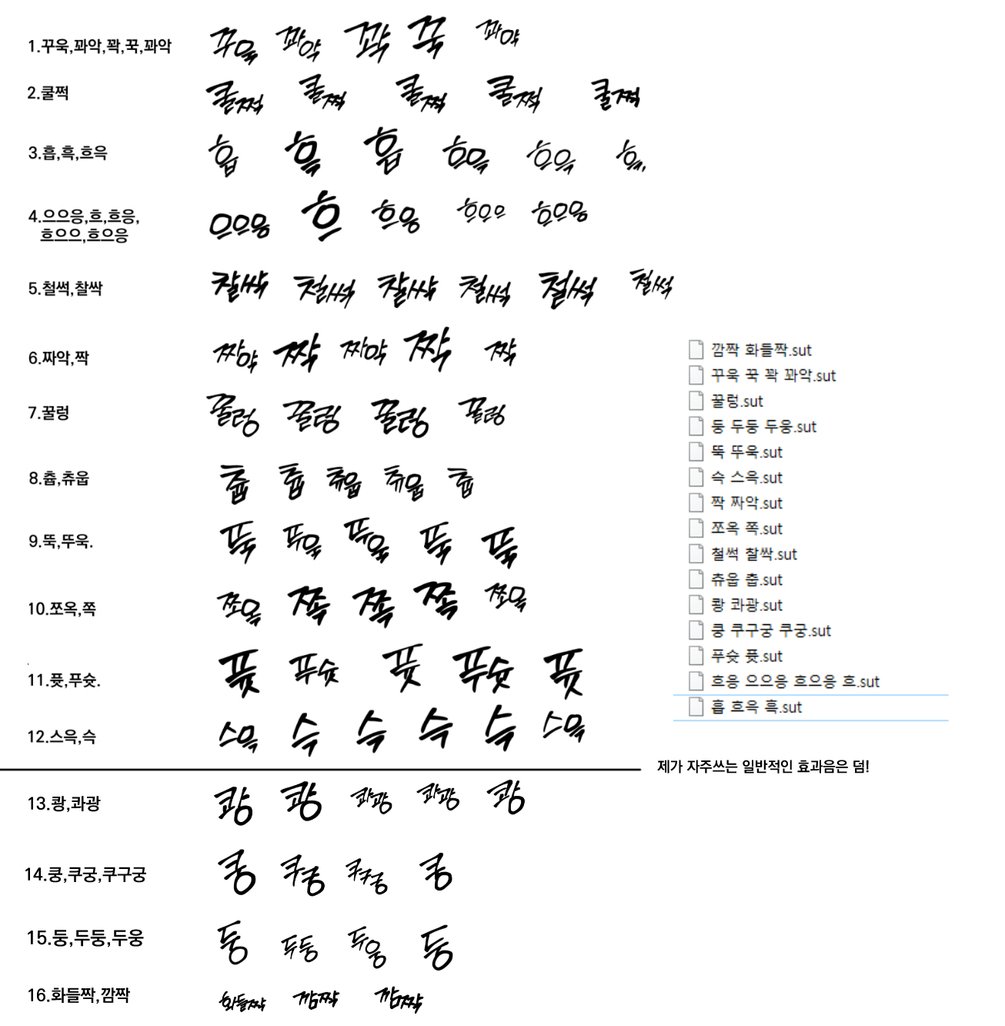 1.꾸욱,꽈악,꽉,꾹,꽈악 꾸욱 꽈악 꽉 꾹 꽈악
2.쿨쩍 쿨쩍 쿨쩍 쿨쩍 쿨쩍 쿨쩍
3.흡,흑,흐윽 흡 흑 흡 흐윽 흐윽 흑,
4.으으응,흐,흐응, 으으응 흐 흐응 흐으으 흐으응
흐으으,흐으응
5.철썩,찰싹 찰싹 철썩 찰싹 철썩 철썩 철썩
6.짜악,짝 짜악 짝 짜악 짝 짝
7.꿀렁 꿀렁 꿀렁 꿀렁 꿀렁
8.츕,츄웁 츕 츕 츄웁 츄웁 츕
9.뚝,뚜욱. 뚝 뚜욱 뚜욱 뚝 뚝
10.쪼옥,쪽 쪼옥 쪽 쪽 쪽 쪼옥
11.퓻,푸슛. 퓻 푸슛 퓻 푸슛 퓻
12.스윽,슥 스윽 슥 슥 슥 슥 스윽
깜짝 화들짝.sut
꾸욱 꾹 꽉 꽈악.sut
꿀렁.sut
둥 두둥 두웅.sut
뚝 뚜욱.sut
슥 스윽.sut
짝 짜악.sut
쪼옥 쪽.sut
철썩 찰싹.sut
츄웁 츕.sut
쾅 콰광.sut
쿵 쿠구궁 쿠궁.sut
푸슛 퓻.sut
흐응 으으응 흐으응 흐.sut
흡 흐윽 흑.sut
제가 자주쓰는 일반적인 효과음은 덤!
13.쾅,콰광 쾅 쾅 콰광 콰광 쾅
14.쿵,쿠궁,쿠구궁 쿵 쿠궁 쿠구궁 쿵
15.둥,두둥,두웅 둥 두둥 두웅 둥
16.화들짝,깜짝 화들짝 깜짝 깜짝